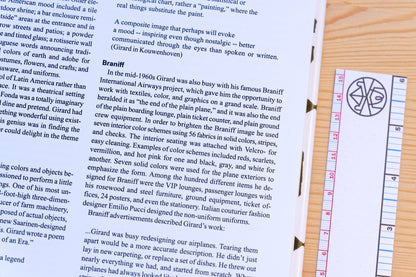 Else-
American mood included a tile
door shrine; a bar enclosure remi-
"side" areas at the entrance and in
row streets and patios; a powder
e and tinted glass; a rotisserie wall
uguese words announcing tradi-
l colors of earth and adobe for
ostumes, flowers, and crafts; and
ssware, and uniforms.
ol of Latin America rather than
ace. It was a theatrical setting
Fonda was a totally imaginary
d dine and pretend. Girard had
mething wonderful using exist-
is genius was in finding the
r could delight in the theme
ning colors and objects be-
ssioned to perform a little
ings. One of his most un-
d-foot-high three-dimen-
ucer of farm machinery,
posed of actual objects,
new Saarinen-designed
ors. Girard wrote a poem
of an Era."
a legend
ological chart, rather a "painting," where the
real things substitute the paint.
A composite image that perhaps will evoke
a mood -- inspiring even though nostalgic -- better
communicated through the eyes than spoken or written.
(Girard in Kouwenhoven)
Braniff
In the mid-1960s Girard was also busy with his famous Braniff
International Airways project, which gave him the opportunity to
work with textiles, color, and graphics on a grand scale. Braniff
heralded it as "the end of the plain plane," and it was also the end
of the plain boarding lounge, plain ticket counter, and plain ground
crew equipment. In order to brighten the Braniff image he used
seven interior color schemes using 56 fabrics in solid colors, stripes,
and checks. The interior seating was attached with Velcro- for
easy cleaning. Examples of color schemes included reds, scarlets,
vermillion, and hot pink for one and black, gray, and white for
another. Seven solid colors were used for the plane exteriors to
emphasize the form. Among the hundred different items he de-
signed for Braniff were the VIP lounges, passenger lounges with
his rosewood and steel furniture, ground equipment, ticket of-
fices, 24 posters, and even the stationery. Italian couture fashion
designer Emilio Pucci designed the non-uniform uniforms.
Braniff advertisements described Girard's work:
...Girard was busy redesigning our airplanes. Tearing them
apart would be a more accurate description. He didn't just
lay in new carpeting, or replace a set of dishes. He threw out
nearly everything we had, and started from scratch. Why
airplanes had always looked
15
14
13
12
11
10
6
5
4
3